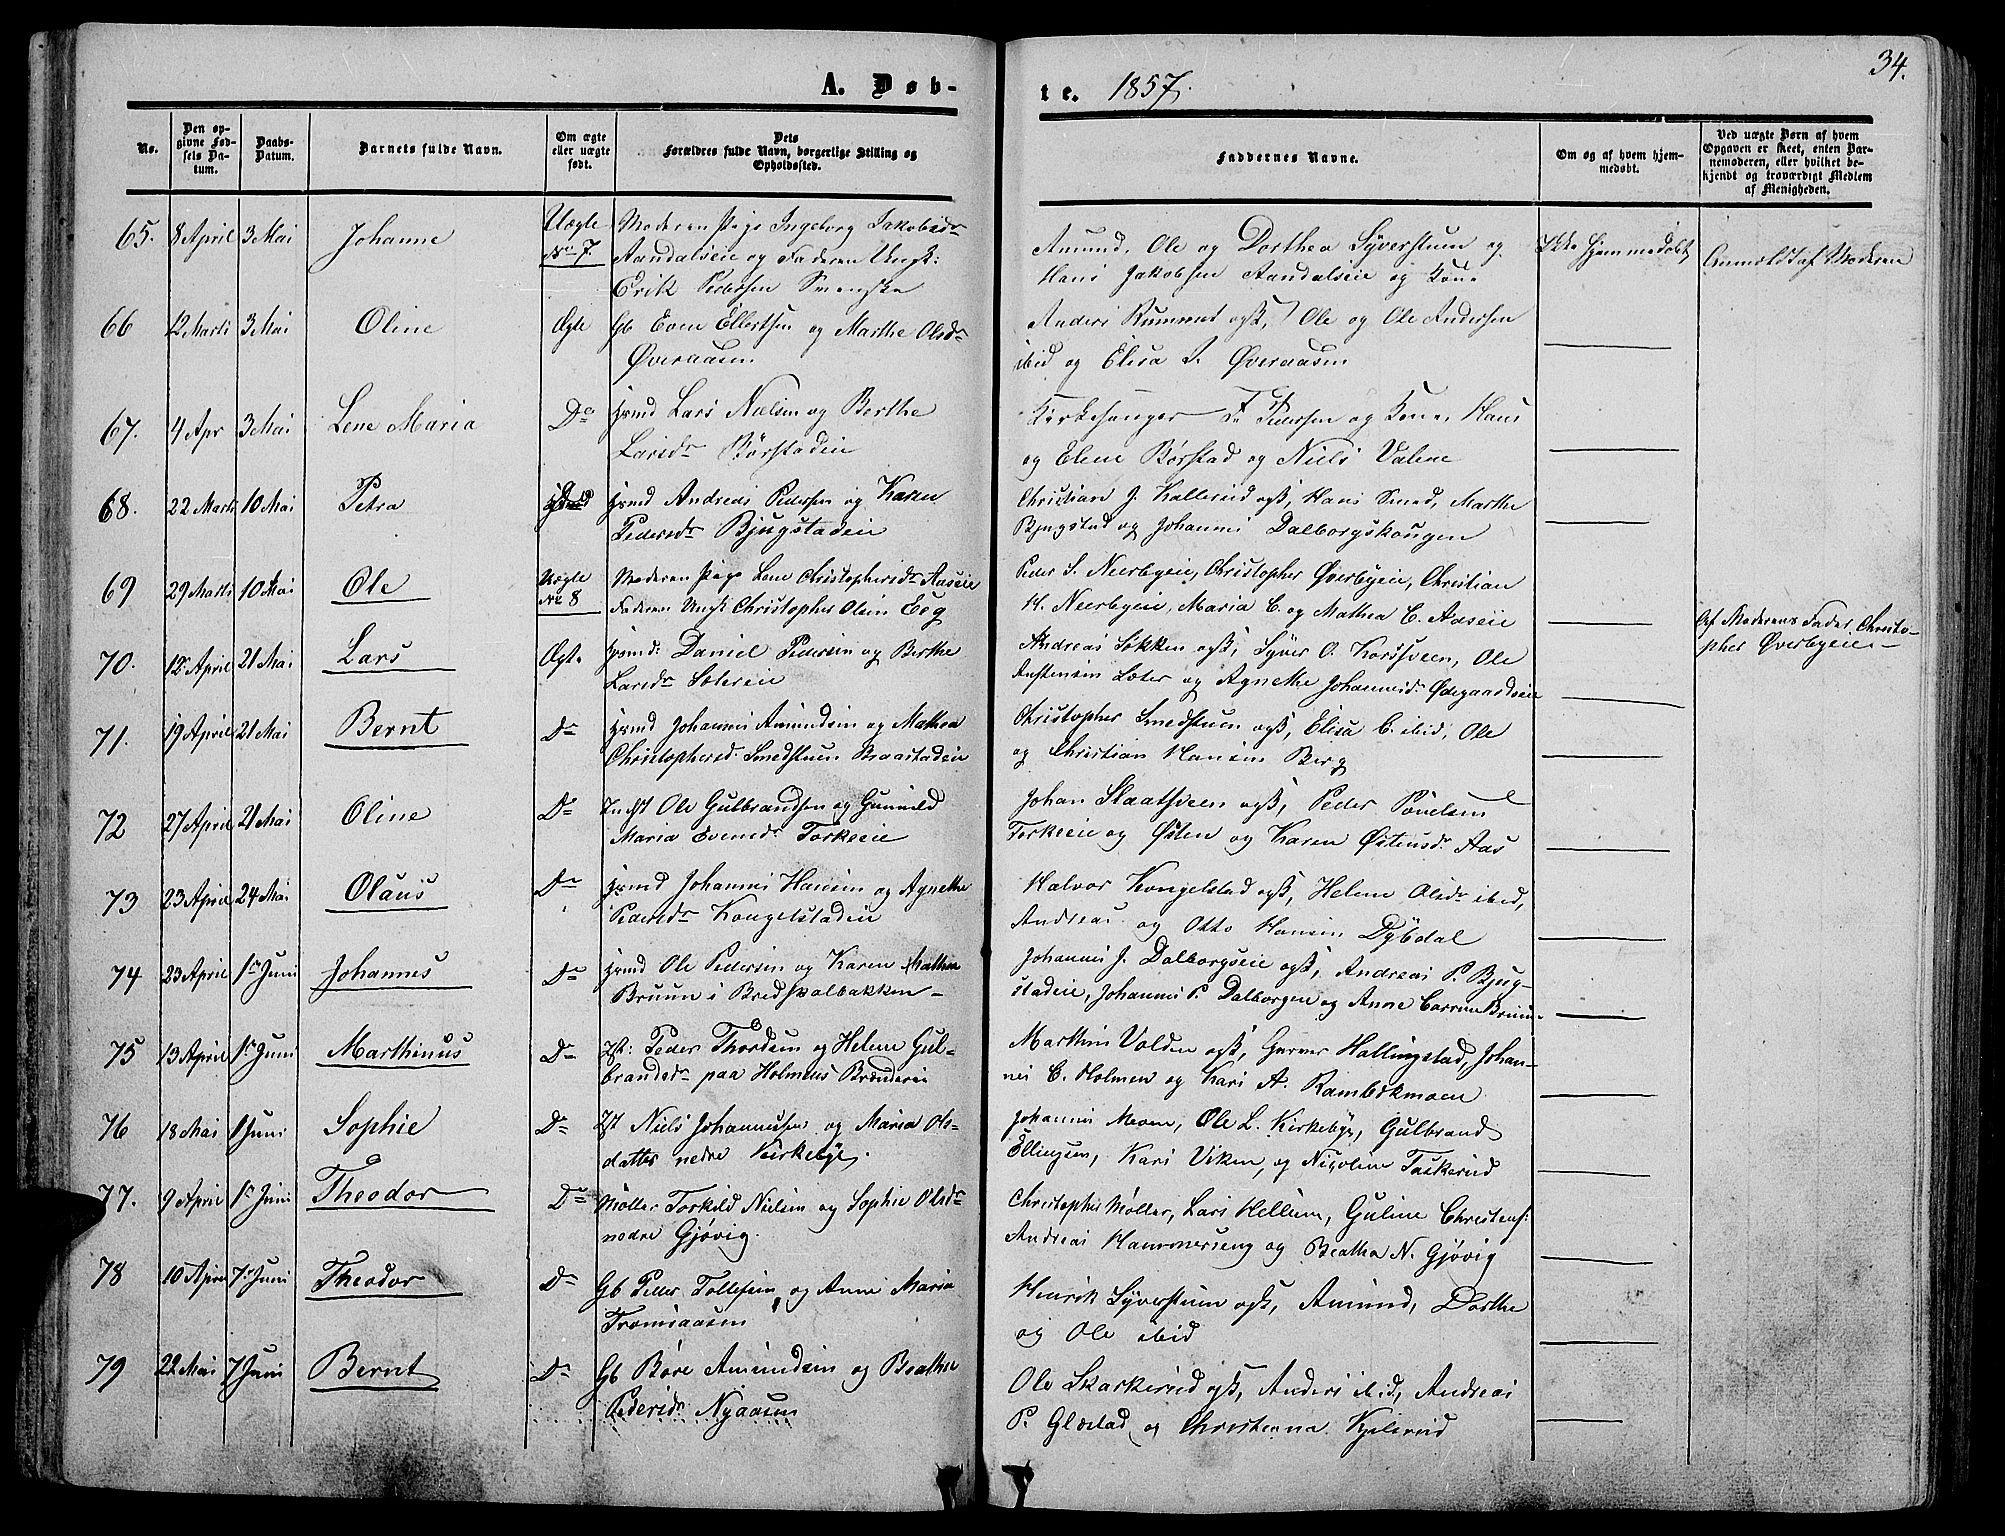 34.
A. Døb-
te. 1857.
No.
Den op-
givne Fød-
sels Da-
tum.
Daabs-
Datum.
Barnets fulde Navn.
Om ægte
eller uægte
født.
Dets
Forældres fulde Navn, borgerlige Stilling og
Opholdssted.
Faddernes Navne.
Om og af hvem hjem-
medøbt.
Ved uægte Børn af hvem
Opgaven er skeet, enten Bar-
nemoderen, eller hvilket be-
kjendt og troværdigt Medlem
af Menigheden.
65. 8 April 3 Mai Johanne Uægte No 7. Moderen Pige Ingeborg Jakobsdr
Aandalseie og Faderen Ungk:
Erik Pedersen Svenske
Amund, Ole og Dorthea Syverstuen og
Hans Jakobsen Aandalseie og Kone
Ikke hjemmedøbt Anmeldt af Moderen
66 12 Marts 3 Mai Oline Ægte Gb Even Ellertsen og Marthe Olsdr
Øveraasen
Anders Rummet ogsk, Ole og Ole Andersen
ibid og Elisa Øveraasen
67. 4 Apr 3 Mai Lene Maria Do Hsmd Lars Nielsen og Berthe
Larsdr Børstadeie
Kirkesanger Pedersen og Kone, Hans
og Elene Børstad og Niels Valene
68. 22 Marts 10 Mai Petra Hsmd Andreas Pedersen og Karen
Pedersdr Bjugstadeie
Christian J. Kallerud ogsk, Hans Smed, Marthe
Bjugstad og Johannes Dalborgskougen
69 29 Marts 10 Mai Ole Uægte No 8 Moderen Pige Lene Christophersdr Aaseie
Faderen Ungk Christopher Olsen Eeg
Peder S. Neerbyeie, Christopher Øverbyeie, Christian
H. Neerbyeie, Maria C. og Mathea C. Aaseie
Af Moderens Fader Christo-
pher Øverbyeie
70. 12 April 21 Mai Lars Ægte Hsmd: Daniel Pedersen og Berthe
Larsdr Sætereie
Andreas Løkken ogsk, Syver O. Korsveen, Ole
Austensen Sæter og Agnethe Johannesdr Ødegaardseie
71. 19 April 21 Mai Bernt Do Hsmd Johannes Amundsen og Mathea
Christophersd: Smedstuen Braastadeie
Christopher Smedstuen ogsk, Elisa C. ibid, Ole
og Christian Hansen Berg
72 27 April 21 Mai Oline Do Indst Ole Gulbrandsen og Gunild
Maria Evensdr Torkeeie
Johan Slaatsveen ogsk, Peder Povelsen
Torkeeie og Østen og Karen Østensdr Aas
73 23 April 24 Mai Olaus Do Hsmd Johannes Hansen og Agnethe
Pedersdr Kongelstadeie
Halvor Kongelstad ogsk, Helene Olsdr ibid,
Andreas og Otto Hansen Dybdal
74 23 April 1ste Juni Johannes Do Hsmd Ole Pedersen og Karen Mathea
Bruun i Bredskalbakken
Johannes J. Dalborgseie ogsk, Andreas P. Bjug-
stadeie, Johannes P. Dalborgen og Anne Bruun
75 13 April 1ste Juni Marthinus Do Ist: Peder Thordsen og Helene Gul-
brandsdr paa Holmens Brænderei
Marthin Volden ogsk, Hallingstad, Johan-
nes C. Holmen og Kari A. Rambekmoen
76 18 Mai 1 Juni Sophie Do Ist Niels Johannesen og Maria Ols-
datter nedre Kirkebye.
Johannes Moen, Ole L. Kirkebye, Gulbrand
Ellingsen, Kari Viken, og Nicoline Taskerud
77. 9 April 1ste Juni Theodor Do Møller Torkild Nielsen og Sophie Olsdr
nedre Gjøvig.
Christopher Møller, Lars Hellum, Guline Christens:
Andreas Hammerseng og Beatha N. Gjøvig
78 10 April 7 Juni Theodor Do Gb Peder Tollefsen og Anne Maria
Tromsaasen
Henrik Syverstuen ogsk, Amund, Dorthe
og Ole ibid
79 22 Mai 7 Juni Bernt Do Gb Børe Amundsen og Beathe
Pedersdr Nyaasen
Ole Skarkerud ogsk, Anders ibid, Andreas
P. Glæstad og Christianna Kjelerud